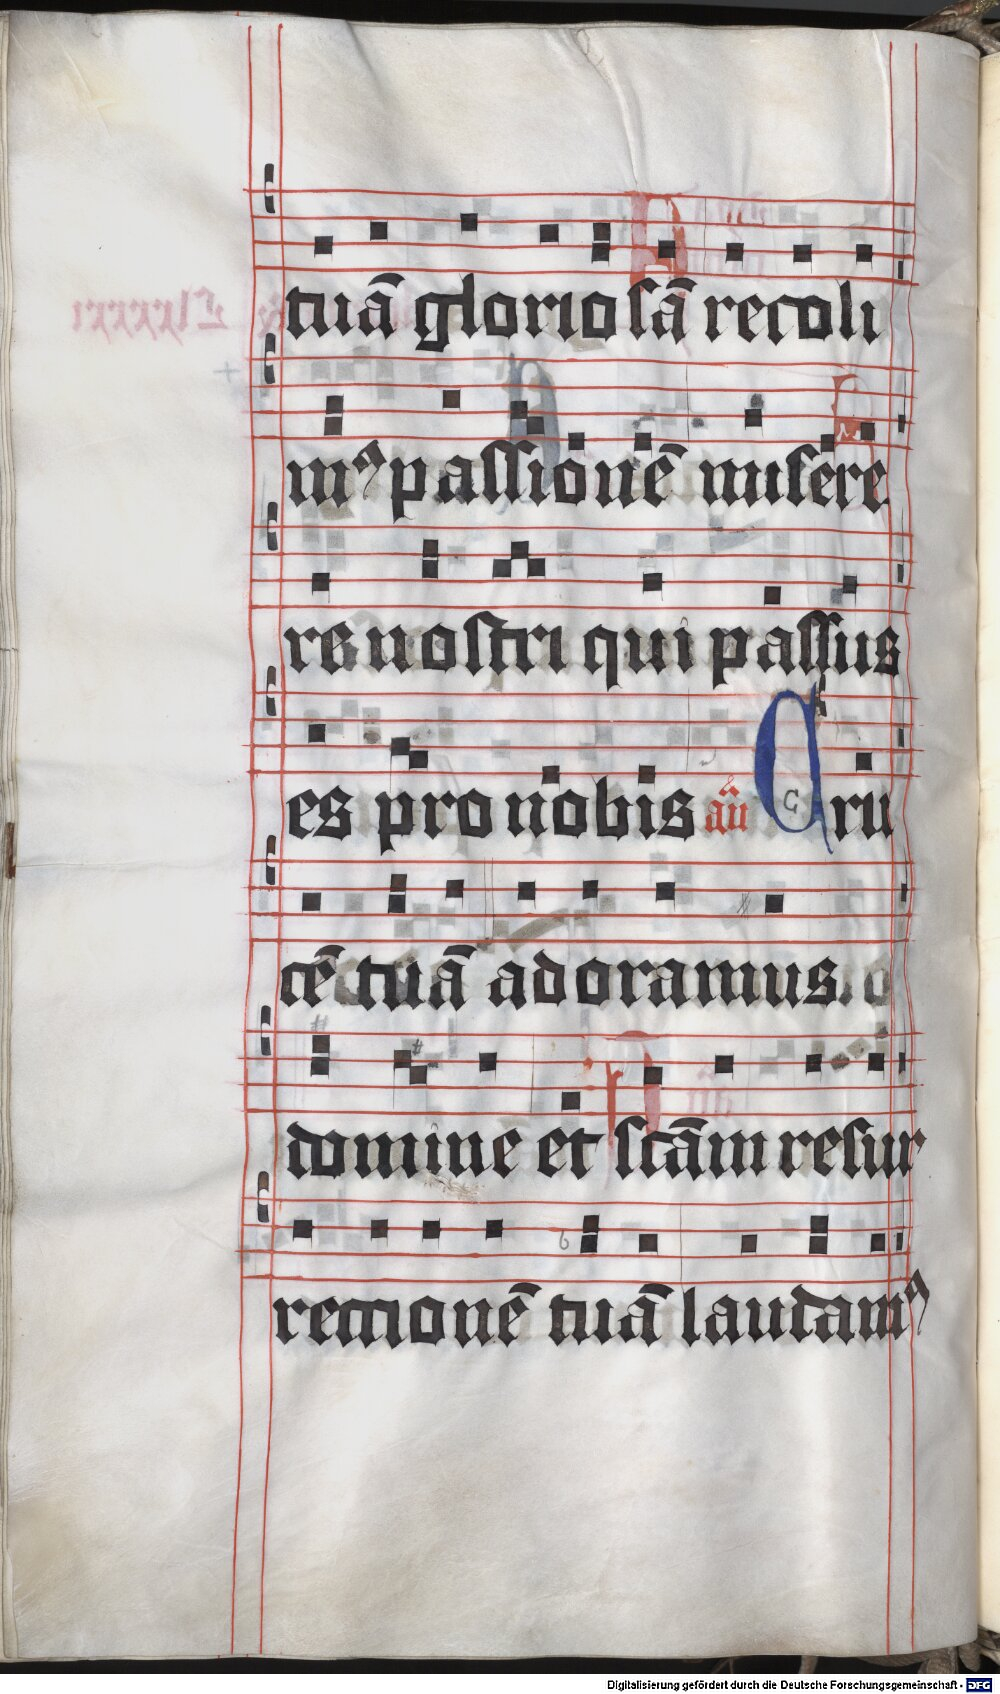 tuā gloriosā recoli
mꝰ passionē misere
re nostri qui passus
es pro nobis añ Cru
cē tuā adoramus.
domine et sctām resur
rectionē tuā laudamꝰ
Digitalisierung gefördert durch die Deutsche Forschungsgemeinschaft - DFG